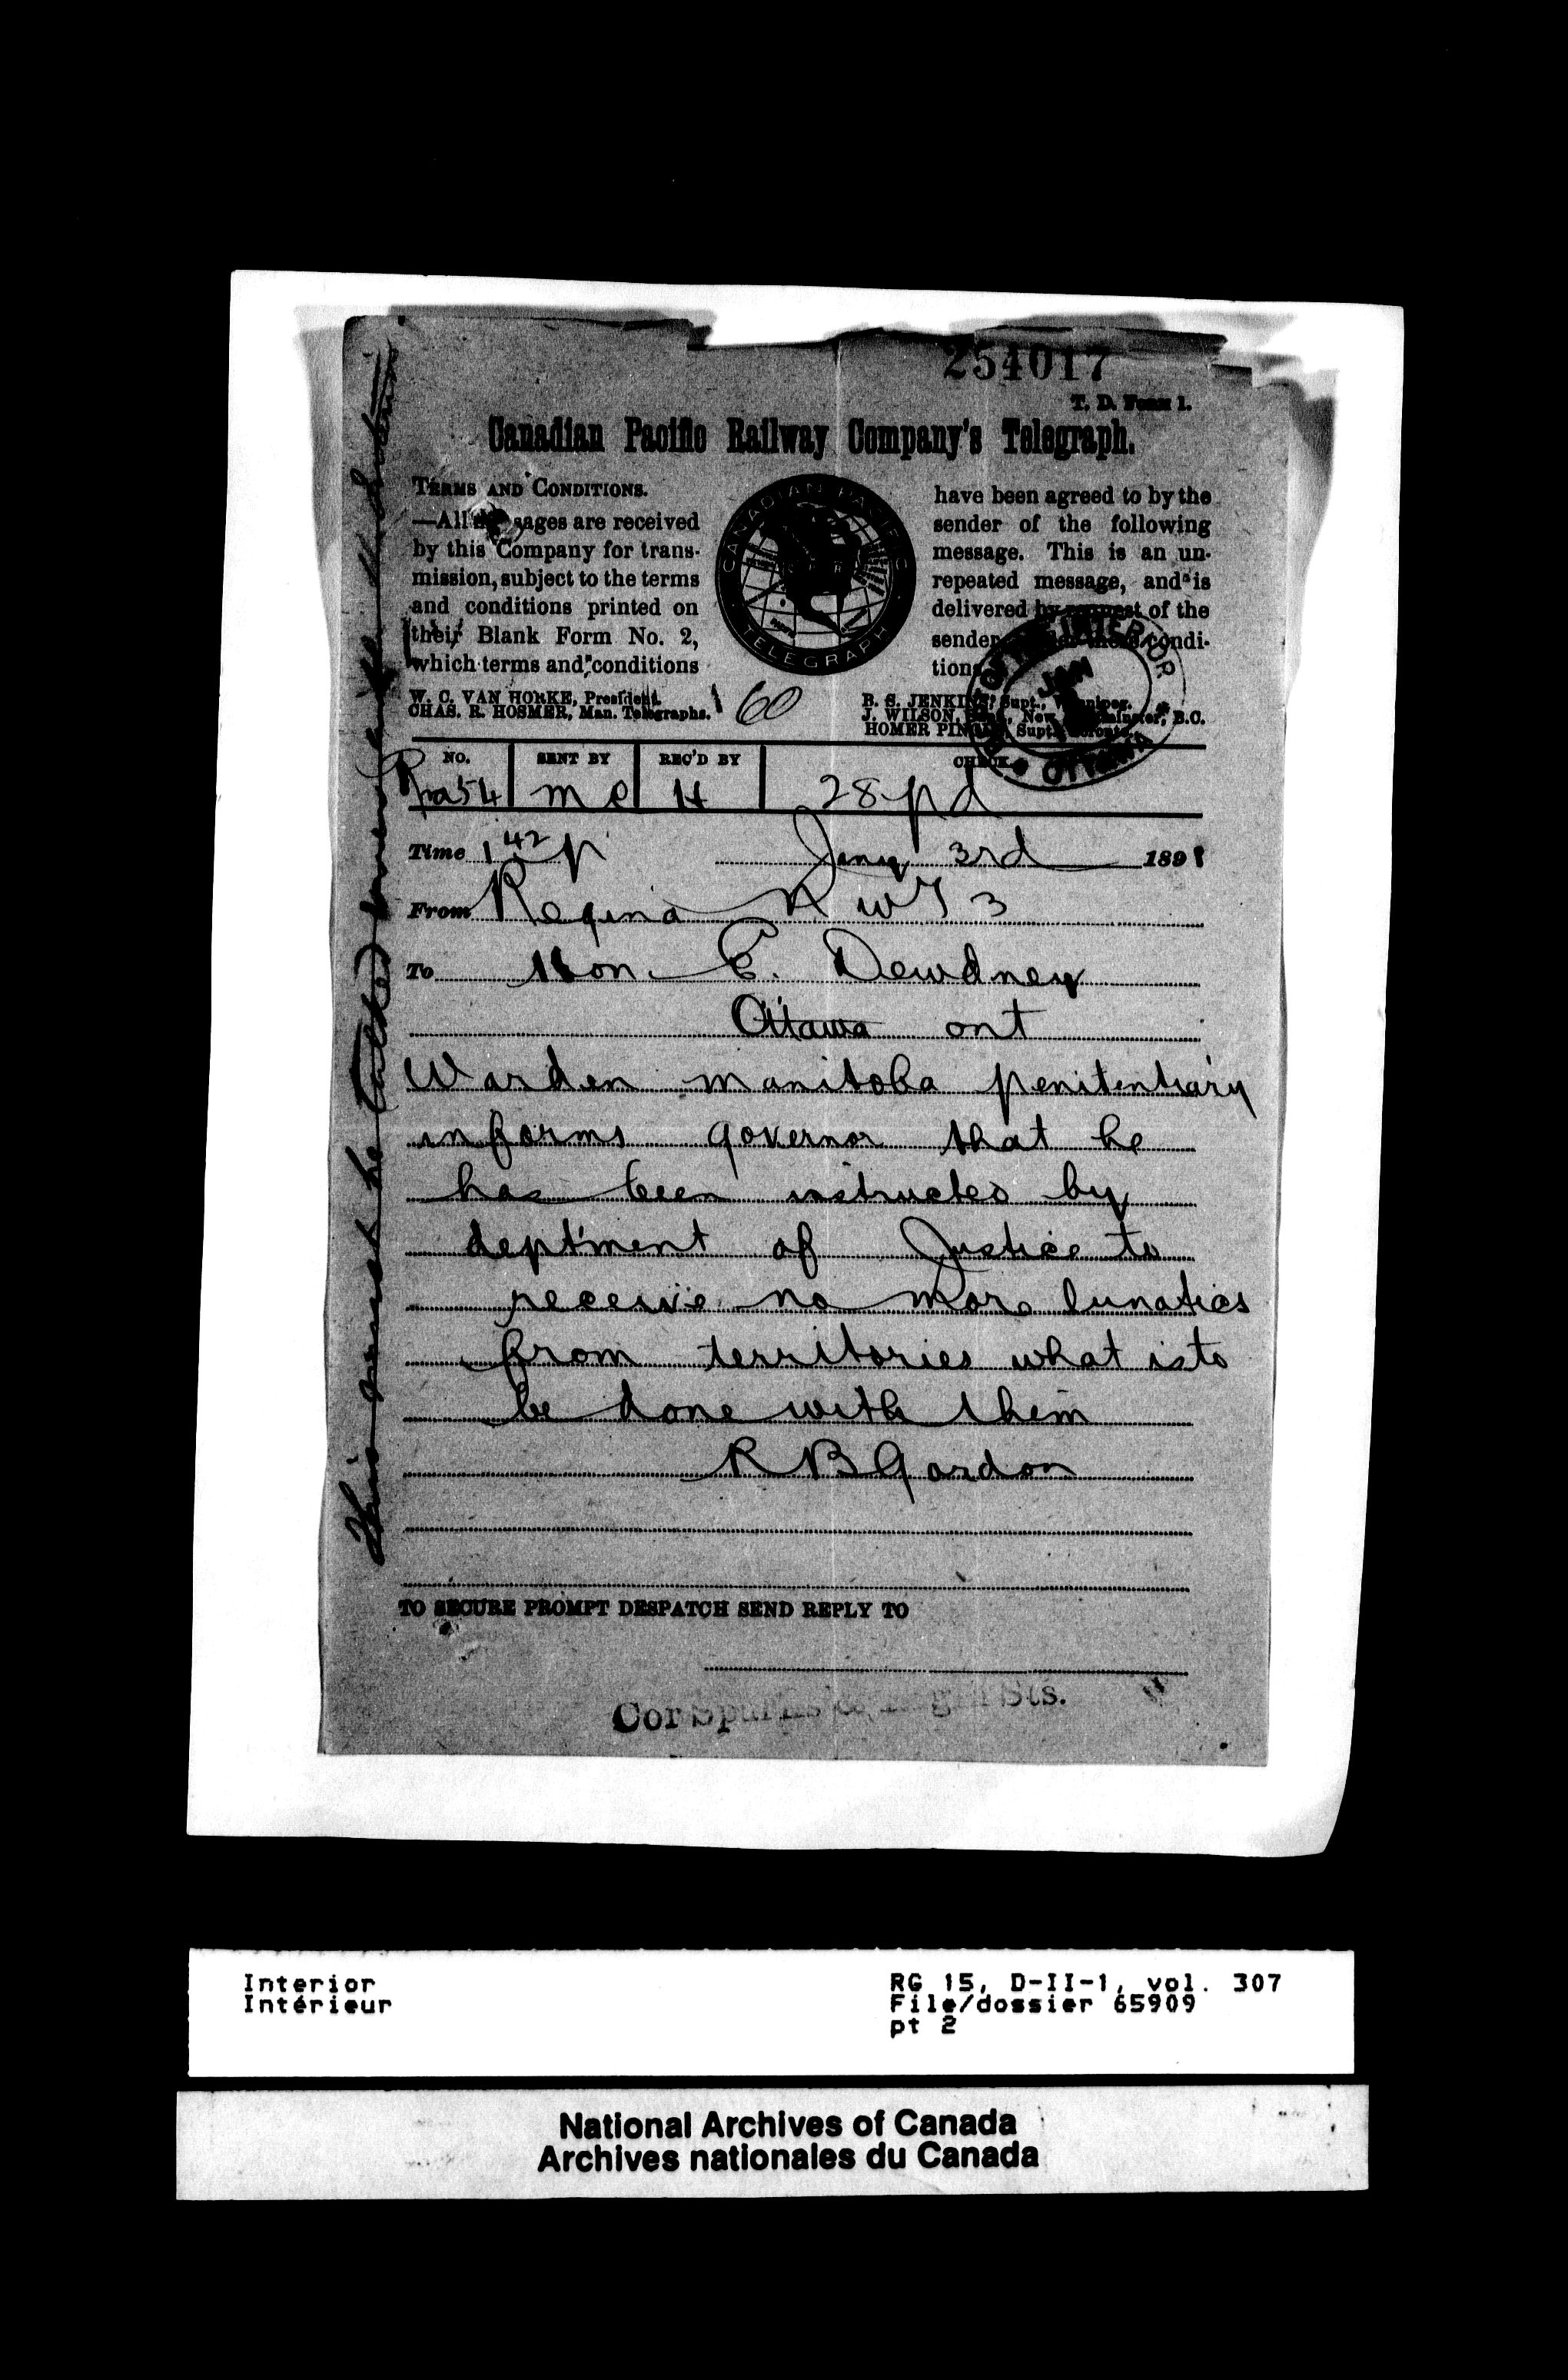 254017
T. D. Form 1.
Canadian Pacific Railway Company's Telegraph.
TERMS AND CONDITIONS.
—All sages are received
by this Company for trans-
mission, subject to the terms
and conditions printed on
their Blank Form No. 2,
which terms and conditions
CANADIAN PACIFIC
TELEGRAPH
have been agreed to by the
sender of the following
message. This is an un-
repeated message, and is
delivered by request of the
sender condi-
tions
W. C. VAN HORNE, President.
CHAS. R. HOSMER, Man. Telegraphs.
160
B. S. JENKINS, Supt., Winnipeg.
J. WILSON, Supt., New Westminster, B.C.
HOMER PINGLE, Supt., Toronto.
INTERIOR
JAN
OTTAWA
NO. SENT BY REC'D BY CHECK
54 mc H 28 pd
Time 1 42 p Jany 3rd 1891
From Regina N W T 3
To Hon. E. Dewdney
Ottawa ont
Warden manitoba penitentiary
informs governor that he
has been instructed by
deptment of Justice to
receive no more lunatics
from territories what is to
be done with them
R B Gordon
TO SECURE PROMPT DESPATCH SEND REPLY TO
Cor Sparks & Elgin Sts.
This must be talked over with
Interior
Intérieur
RG 15, D-II-1, vol. 307
File/dossier 65909
pt 2
National Archives of Canada
Archives nationales du Canada